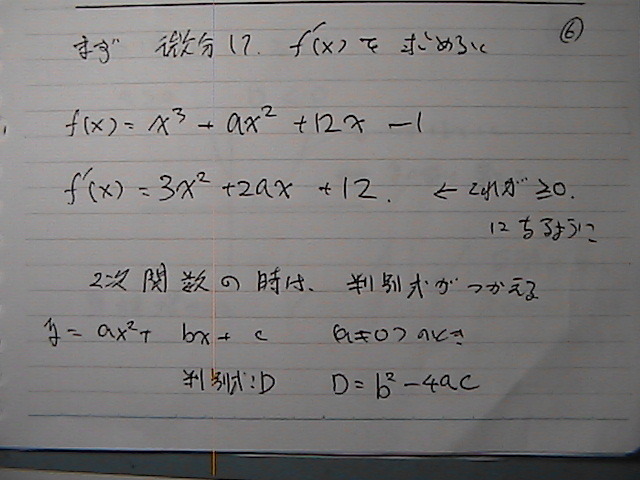 まず 微分して. f'(x) を 求めるに ⑥
f(x) = x³ + ax² + 12x - 1
f'(x) = 3x² + 2ax + 12. ← これが ≥0.
になるように
2次関数の時は. 判別式がつかえる
y = ax² + bx + c (a≠0) のとき
判別式:D D = b² - 4ac